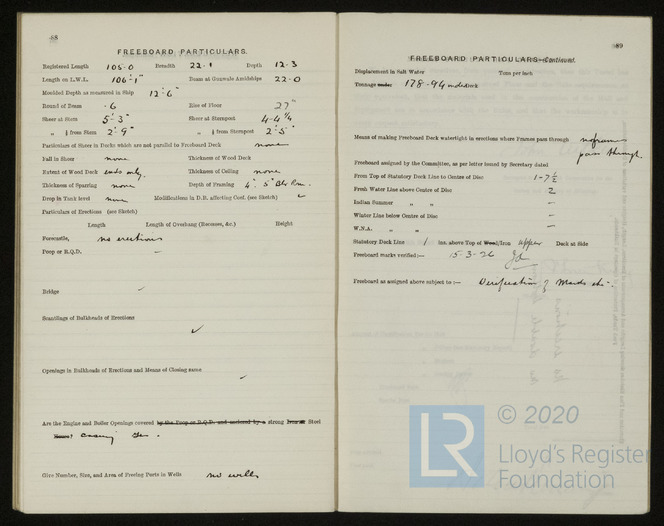 68
FREEBOARD PARTICULARS.
Registered Length 105·0 Breadth 22·1 Depth 12·3
Length on L.W.L. 106'·1" Beam at Gunwale Amidships 22·0
Moulded Depth as measured in Ship 12'·6"
Round of Beam ·6 Rise of Floor 27"
Sheer at Stem 5'·3" Sheer at Sternpost 4-4¼
„ ⅛ from Stem 2'·9" „ ⅛ from Sternpost 2'·5"
Particulars of Sheer in Decks which are not parallel to Freeboard Deck none
Fall in Sheer none Thickness of Wood Deck
Extent of Wood Deck ends only. Thickness of Ceiling none
Thickness of Sparring none Depth of Framing 4. 5"
Drop in Tank level none Modifications in D.B. affecting Coef. (see Sketch) ✓
Particulars of Erections (see Sketch)
Length Length of Overhang (Recesses, &c.) Height
Forecastle, no erections
Poop or R.Q.D. —
Bridge ✓
Scantlings of Bulkheads of Erections
✓
Openings in Bulkheads of Erections and Means of Closing same
✓
Are the Engine and Boiler Openings covered by the Poop or R.Q.D. and enclosed by a strong Iron or Steel
House? casing Yes.
Give Number, Size, and Area of Freeing Ports in Wells no wells
89
FREEBOARD PARTICULARS—Continued.
Displacement in Salt Water Tons per inch
Tonnage under 178·94 underdeck
Means of making Freeboard Deck watertight in erections where Frames pass through no frames
pass through.
Freeboard assigned by the Committee, as per letter issued by Secretary dated
From Top of Statutory Deck Line to Centre of Disc 1-7½
Fresh Water Line above Centre of Disc 2
Indian Summer „ „ —
Winter Line below Centre of Disc —
W.N.A. „ „ —
Statutory Deck Line 1 ins. above Top of Wood/Iron upper Deck at Side
Freeboard marks verified :— 15-3-26
Freeboard as assigned above subject to :— Verification of Marks etc.
© 2020
LR
Lloyd's Register
Foundation